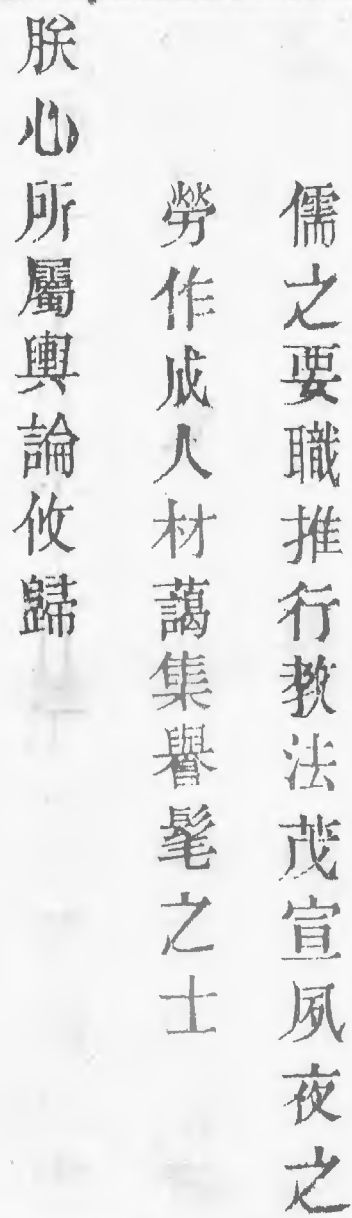 儒之要職推行教法茂宣夙夜之
勞作成人材藹集譽髦之士
朕心所屬輿論攸歸